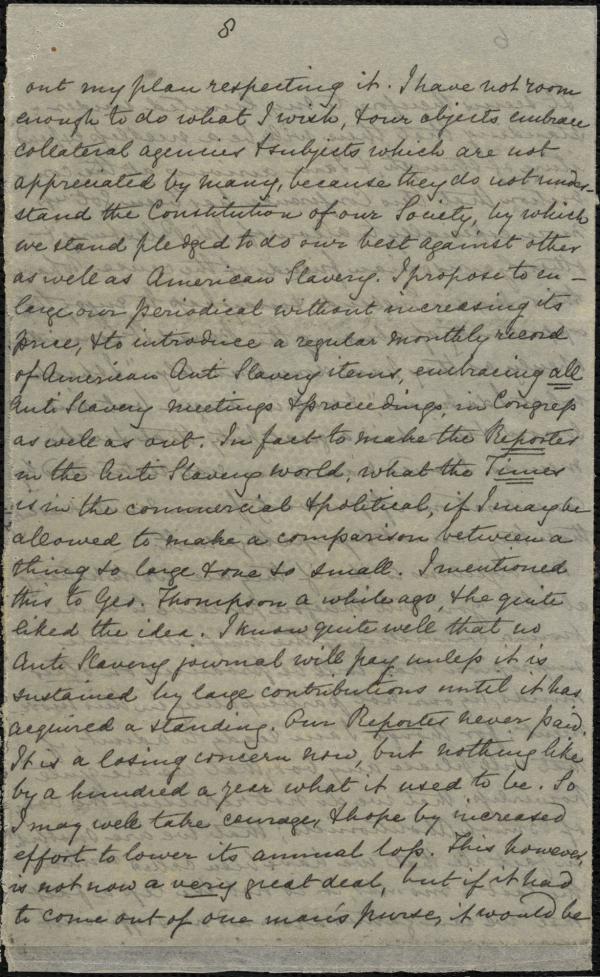 8
out my plan respecting it. I have not room
enough to do what I wish, & our objects embrace
collateral agencies & subjects which are not
appreciated by many, because they do not under-
stand the Constitution of our Society, by which
we stand pledged to do our best against other
as well as American Slavery. I propose to en-
large our periodical without increasing its
price, & to introduce a regular monthly record
of American Anti Slavery items, embracing all
Anti Slavery meetings & proceedings, in Congress
as well as out. In fact to make the Reporter
in the Anti Slavery world, what the Times
is in the commercial & political, if I may be
allowed to make a comparison between a
thing so large & one so small. I mentioned
this to Geo. Thompson a while ago, & he quite
liked the idea. I know quite well that no
Anti Slavery journal will pay unless it is
sustained by large contributions until it has
acquired a standing. Our Reporter never paid.
It is a losing concern now, but nothing like
by a hundred a year what it used to be. So
I may well take courage, & hope by increased
effort to lower its annual loss. This however,
is not now a very great deal, but if it had
to come out of one man's purse, it would be